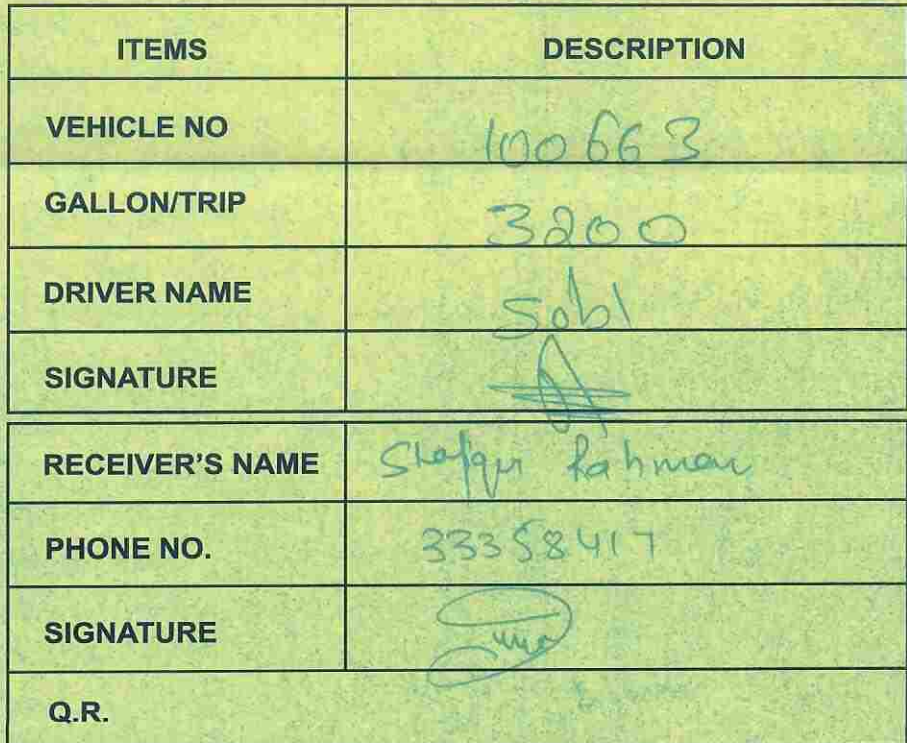 ITEMS DESCRIPTION
VEHICLE NO 100663
GALLON/TRIP 3200
DRIVER NAME Sobl
SIGNATURE
RECEIVER'S NAME Rahman
PHONE NO. 33358417
SIGNATURE
Q.R.